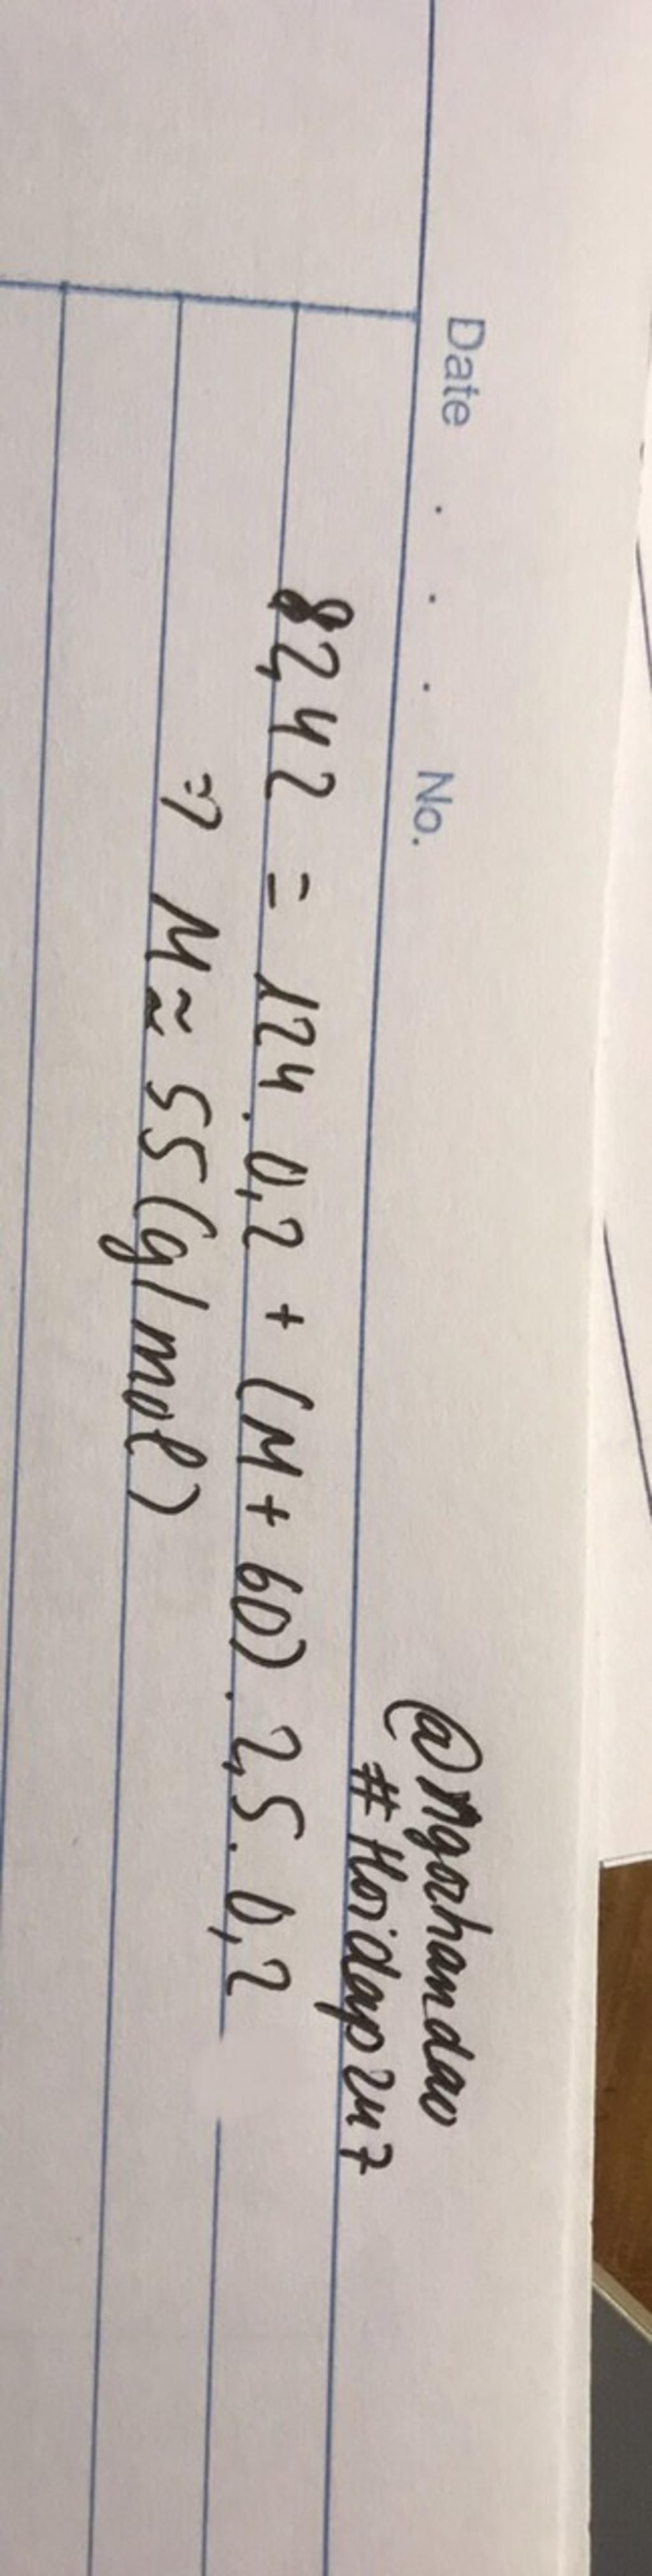 Date . . . No.
@Ngozhandao
#Hoidap247
82,42 = 124.0,2 + (M + 60). 2,5. 0,2
=> M ≈ 55 (g/mol)